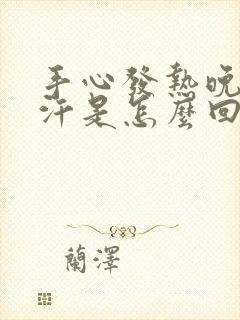 手心發熱晚
汗是怎麼回
蘭澤